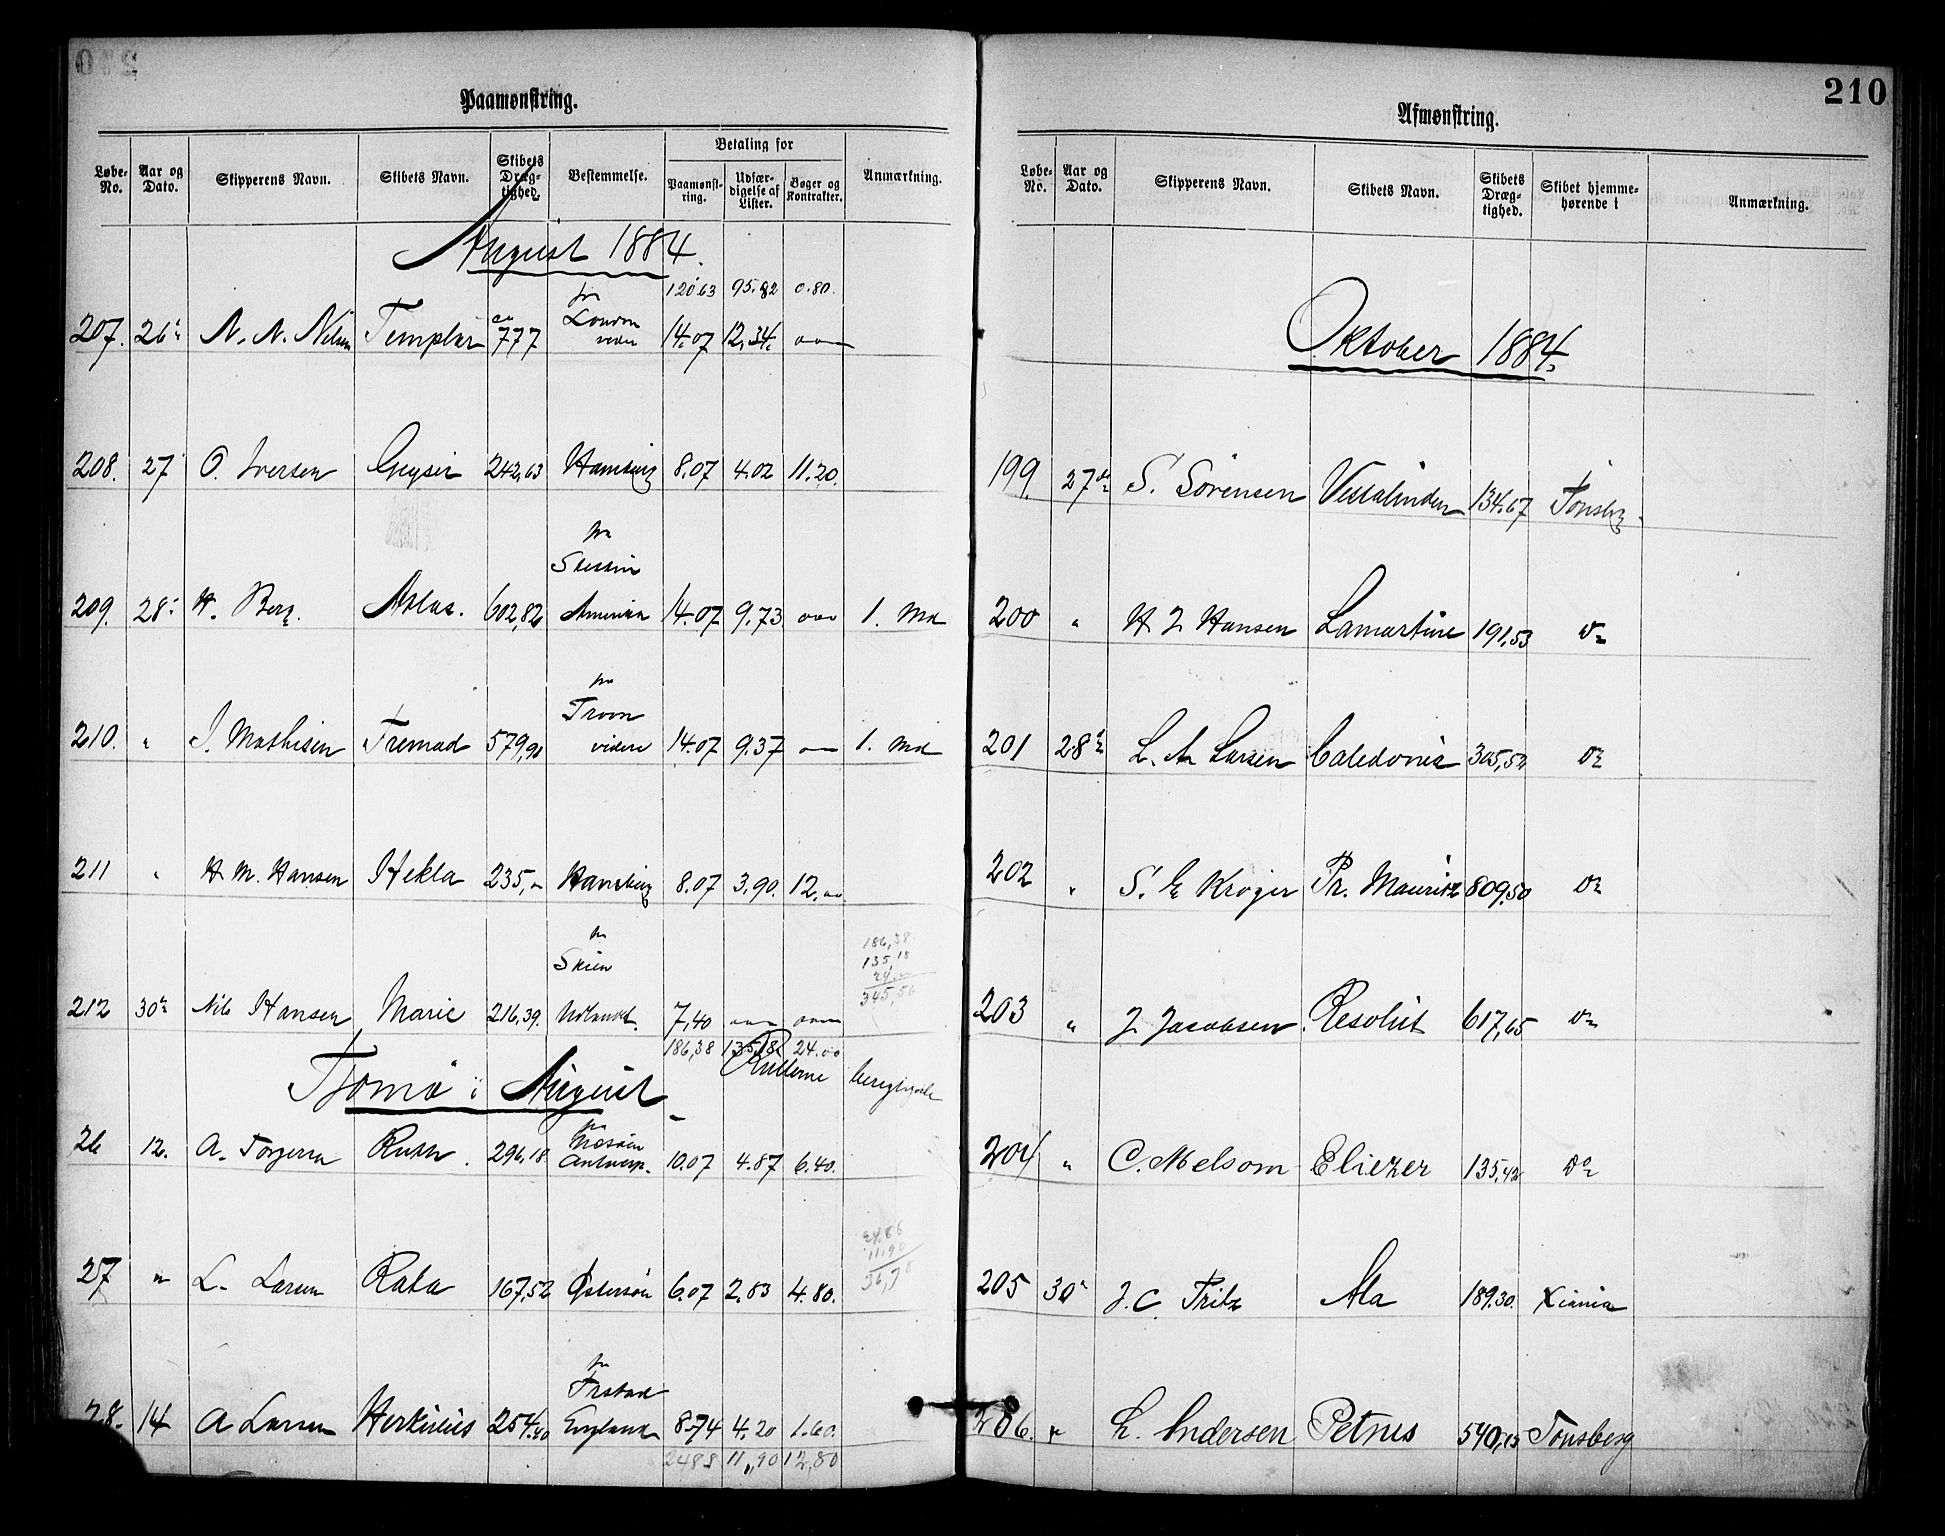 210
Paamønstring.
Løbe-No. Aar og Dato. Skipperens Navn. Skibets Navn. Skibets Dræg-tighed. Bestemmelse. Betaling for Anmærkning.
Paamønst-ring. Udfær-digelse af Lister. Bøger og Kontrakter.
August 1884.
120.63 95.82 0.80.
fra
London
207. 26 N. N. Nilsen Templar 777 videre 14.07 12.34.
208. 27 O. Iversen Geysir 242,63 Hamburg 8.07 4.02 11.20.
fra
Stettin
209. 28 H. Berg. Atlas. 602,82 Amerika 14.07 9.73 1. Md
fra
Troon
210. " J. Mathisen Fremad 579,90 videre 14.07 9.37 1. Md
211 " H. M. Hansen Hekla 235, Hamburg 8.07 3.90. 12.00
fra
Skien
186,38
135,18
24,
345,56
212 30 Nils Hansen Marie 216,39. Udlandet. 7,40
186,38 135,18 24.00
Tjømø i August
26 12. A. Torgersen Ruth. 296,18 fra Mossøen Antwerp. 10.07 4.87 6.40.
24.88
11.90
36,78
27 " L. Larsen Rata 167,52 Østersøn 6.07 2.83 4.80.
fra
Frstad
28. 14 A Larsen Herkules 254,40 England 8.74 4.20 1.60.
2488 11,90 12,80
Afmønstring.
Løbe-No. Aar og Dato. Skipperens Navn. Skibets Navn. Skibets Dræg-tighed. Skibet hjemme-hørende i Anmærkning.
Oktober 1884.
199. 27de S. Sørensen Vestalinden 134.67 Tønsbg
200 " H J Hansen Lamartine 191,53 do
201 28 L. A. Larsen Caledonia 305,52 do
202 " S. E Krøger Pr. Mauritz 809.50 do
203 " J Jacobsen Resolut 617,65 do
204 " C. Melsom Eliezer 135,42 do
205 30 J. C. Fritz Ala 189.30. Xiania
206. " L. Andersen Petrus 540,15 Tønsberg